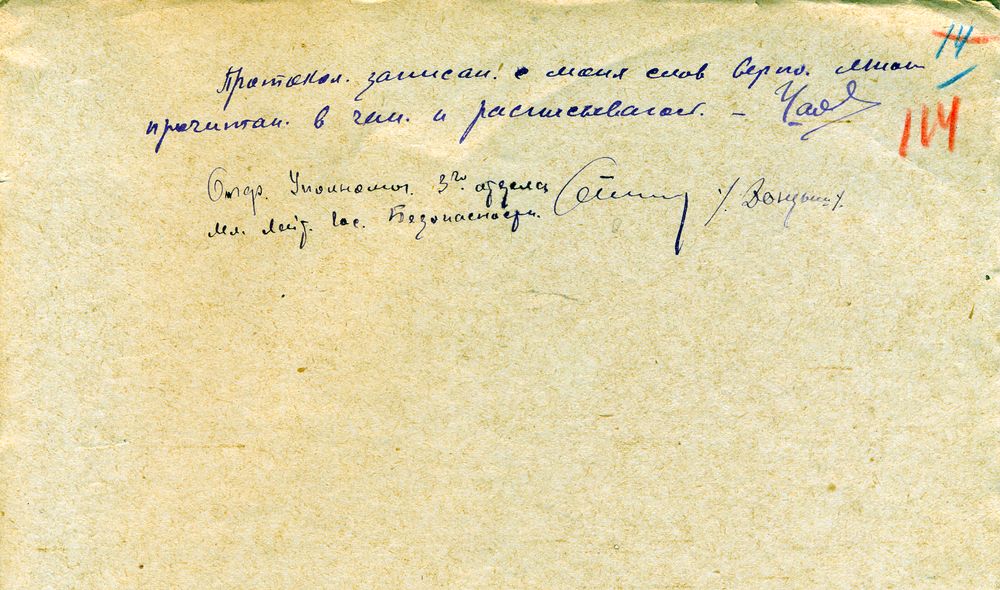 14
114
Протокол. записан. с моня слов верно. мною
прочитан. в чем. и расписываюсь. –
Опер. Уполномоч. 3го отдела
Мл. Лейт. Гос. Безопасности.